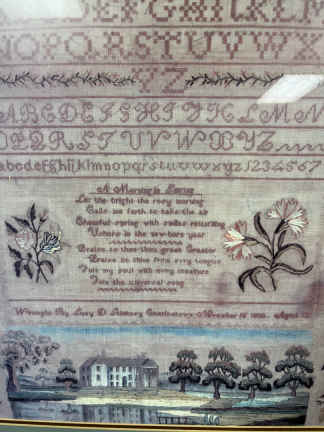 DEFGHIKLM
NOPQRSTUVWX
YZ
ABCDEFGHIJKLMN
OPQRSTUVWXYZ
abcdefghijklmnopqrstuvwxyz1234567
A Morning in Spring
Lo! the bright the rosy morning
Calls me forth to take the air
Cheerful spring with smiles returning
Ushers in the new-born year
Praise to thee thou great Creator
Praise be thine from every tongue
Join my soul with every creature
Join the universal song
Wrought By Lucy D Charlestown November 18 Aged